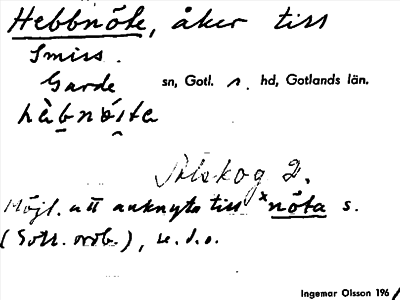 Hebbnöte, åker till
Smiss.
Garde sn, Gotl. s. hd, Gotlands län.
hȧbnöita
Stskog 2.
Möjl. att anknyta till ˣnöta s.
(Gotl. ordb.), e.d.o.
Ingemar Olsson 196